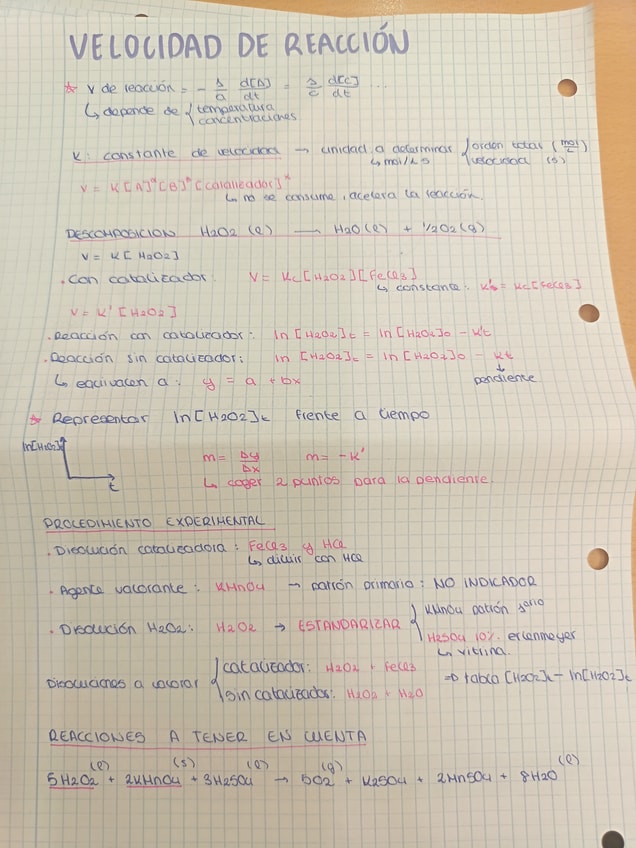 VELOCIDAD DE REACCIÓN
* V de reacción = - 1/a d[A]/dt = 1/c d[C]/dt ...
↳ depende de { temperatura
concentraciones
K: constante de velocidad → unidad a determinar { orden total (mol/L)
↳ mol/L s velocidad (s)
V = K[A]ⁿ[B]ⁿ[catalizador]ⁿ
↳ no se consume, acelera la reacción.
DESCOMPOSICION H2O2 (l) — H2O(l) + 1/2O2(g)
V = K[H2O2]
· Con catalizador: V = Kc[H2O2][FeCl3]
↳ constante: K' = Kc[FeCl3]
V = K'[H2O2]
· Reacción con catalizador: ln[H2O2]t = ln[H2O2]0 - K't
· Reacción sin catalizador: ln [H2O2]t = ln[H2O2]0 - Kt
↳ equivalen a: y = a + bx pendiente
* Representar ln[H2O2]t frente a tiempo
ln[H2O2]t
t
m = Δy/Δx m = -K'
↳ coger 2 puntos para la pendiente.
PROCEDIMIENTO EXPERIMENTAL
· Disolución catalizadora: FeCl3 y HCl
↳ diluir con HCl
· Agente valorante: KMnO4 → patrón primario: NO INDICADOR
· Disolución H2O2: H2O2 → ESTANDARIZAR { KMnO4 patrón
H2SO4 10% erlenmeyer
↳ vitrina.
Disoluciones a valorar { catalizador: H2O2 + FeCl3
sin catalizador: H2O2 + H2O
⇒ tabla [H2O2]t - ln[H2O2]t
REACCIONES A TENER EN CUENTA
5H2O2 (l) + 2KMnO4 (s) + 3H2SO4 (l) → 5O2 (g) + K2SO4 + 2MnSO4 + 8H2O (l)